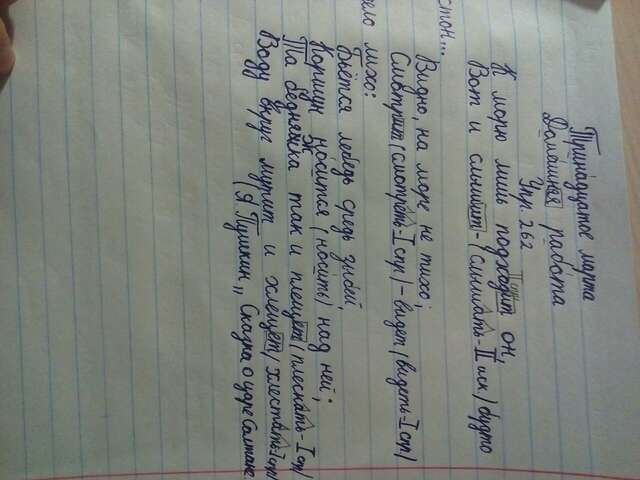 Тринадцатое марта
Домашняя работа
Упр. 262
К морю лишь подходит II спр он,
Вот и слышит - (слышать - II иск) будто
стон...
Видно, на море не тихо;
Смотрит (смотреть - I спр) - видет (видеть - I спр)
дело лихо:
Бьётся лебедь средь зыбей,
Коршун носится (носить) над ней;
Та бедняжка так и плещет (плескать - I спр)
Воду вкруг мутит и хлещет (хлестать - I спр)
(А Пушкин „ Сказка о царе Салтане